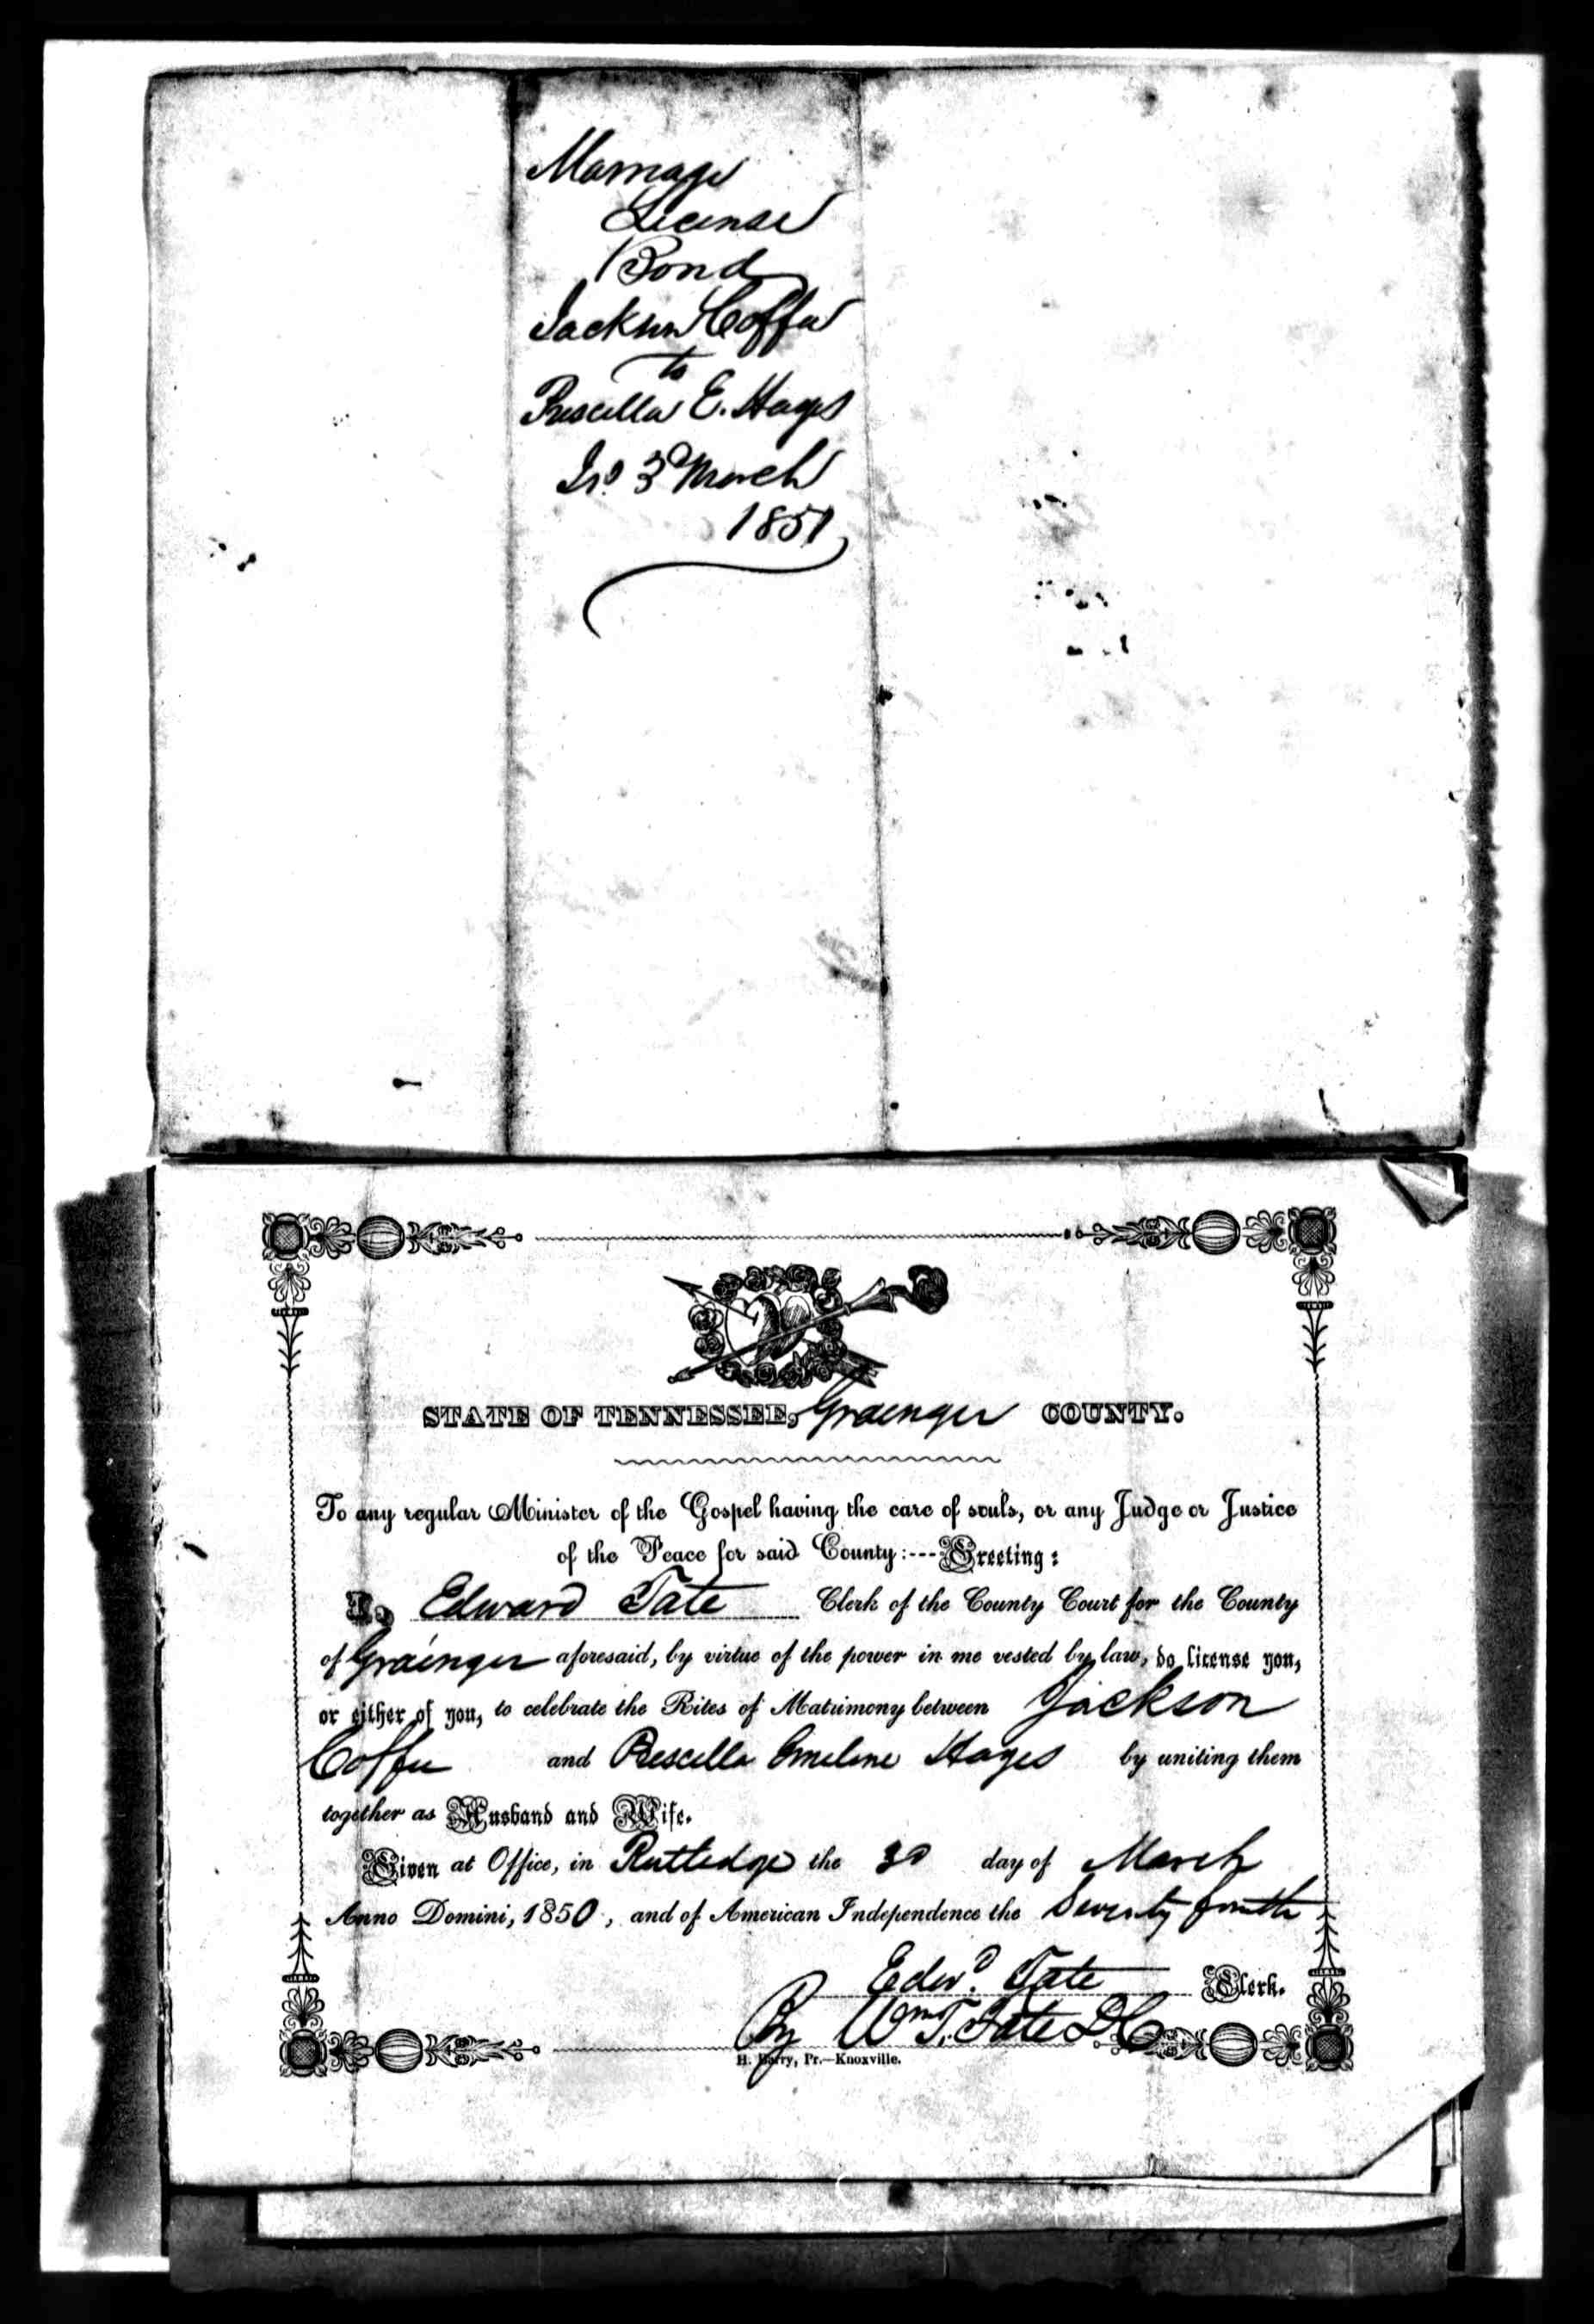 Marriage
License
Bond
Jackson Coffee
to
Priscilla E. Hayes
Isd. 3d March
1851
STATE OF TENNESSEE, Grainger COUNTY.
To any regular Minister of the Gospel having the care of souls, or any Judge or Justice
of the Peace for said County:---Greeting:
I, Edward Tate Clerk of the County Court for the County
of Grainger aforesaid, by virtue of the power in me vested by law, do license you,
or either of you, to celebrate the Rites of Matrimony between Jackson
Coffee and Priscilla Emeline Hayes by uniting them
together as Husband and Wife.
Given at Office, in Rutledge the 3d day of March
Anno Domini, 1850, and of American Independence the Seventy fourth
Edwd. Tate Clerk.
By Wm T. Tate DC
H. Barry, Pr.—Knoxville.